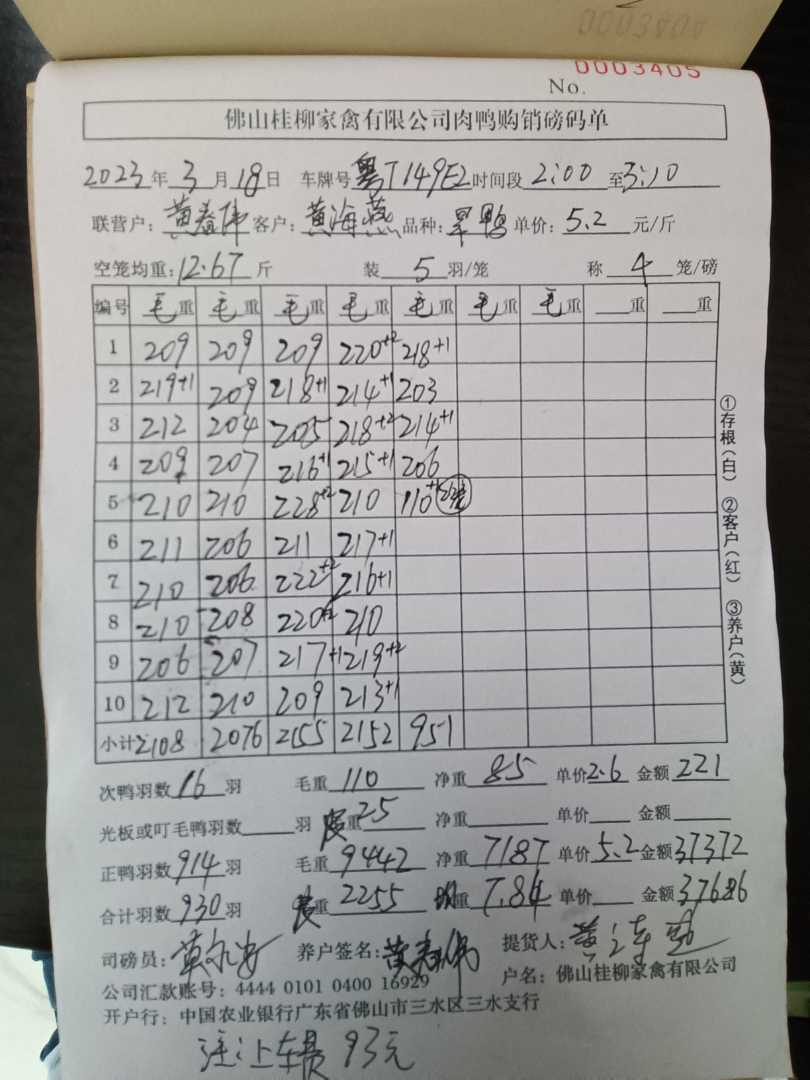 0003405
No.
佛山桂柳家禽有限公司肉鸭购销磅码单
2023年3月18日 车牌号 粤T149E2 时间段 2:00 至 3:10
联营户：黄春伟 客户：黄海燕 品种：旱鸭 单价：5.2 元/斤
空笼均重：12.67 斤 装 5 羽/笼 称 4 笼/磅
编号 毛重 毛重 毛重 毛重 毛重 毛重 毛重 重 重
1 209 209 209 220+2 218+1
2 219+1 209 218+1 214+1 203
3 212 204 205 218+2 214+1
4 209 207 216+1 215+1 206
5 210 210 228+2 210 110+1
6 211 206 211 217+1
7 210 206 222+2 216+1
8 210 208 220+2 210
9 206 207 217+1 219+2
10 212 210 209 213+1
小计 2108 2076 2155 2152 951
①存根(白) ②客户(红) ③养户(黄)
次鸭羽数 16 羽 毛重 110 净重 85 单价 2.6 金额 221
光板或叮毛鸭羽数 羽 重 25 净重 单价 金额
正鸭羽数 914 羽 毛重 9442 净重 7187 单价 5.2 金额 37372
合计羽数 930 羽 重 2255 重 7.84 单价 金额 37686
司磅员： 养户签名：黄春伟 提货人：
公司汇款账号：4444 0101 0400 16929 户名：佛山桂柳家禽有限公司
开户行：中国农业银行广东省佛山市三水区三水支行
注：上车费 93元